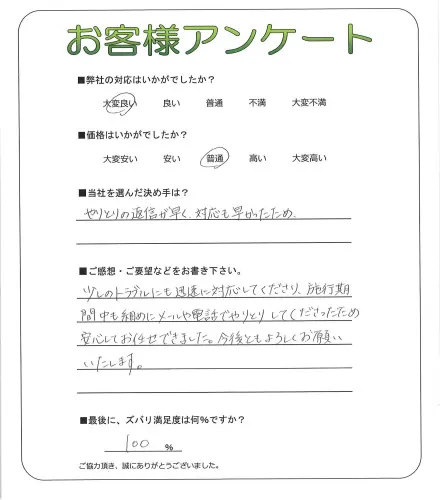 お客様アンケート
■弊社の対応はいかがでしたか?
大変良い 良い 普通 不満 大変不満
■価格はいかがでしたか?
大変安い 安い 普通 高い 大変高い
■当社を選んだ決め手は?
やりとりの返信が早く、対応も早かったため、
■ご感想・ご要望などをお書き下さい。
少しのトラブルにも迅速に対応してくださり、施行期
間中も細めにメールや電話でやりとりしてくださったため
安心してお任せできました。今後ともよろしくお願い
いたします。
■最後に、ズバリ満足度は何%ですか?
100 %
ご協力頂き、誠にありがとうございました。